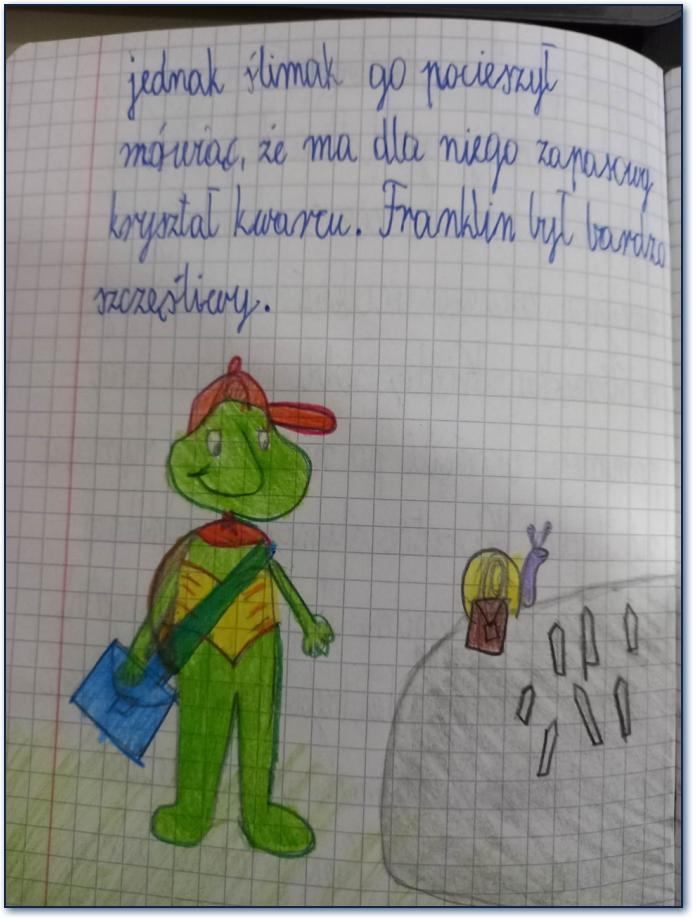 jednak ślimak go pocieszył
mówiąc, że ma dla niego zapasowy
kryształ kwarcu. Franklin był bardzo
szczęśliwy.